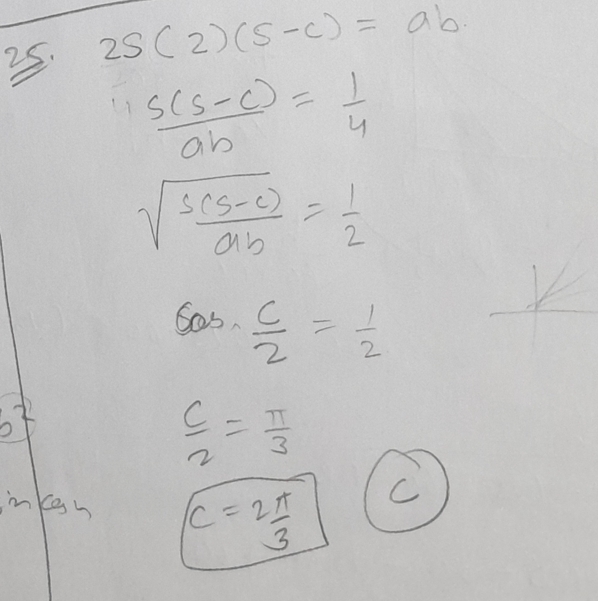 25. 2S(2)(S-C) = ab.
S(S-C)/ab = 1/4
√(S(S-C)/ab) = 1/2
Cos. C/2 = 1/2
C/2 = π/3
C = 2π/3
C
b²